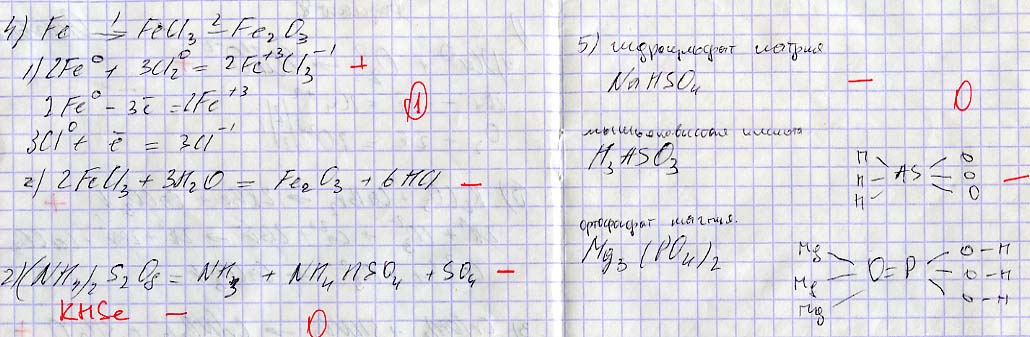 4) Fe →¹ FeCl₃ →² Fe₂O₃
1) 2Fe⁰ + 3Cl₂⁰ = 2Fe⁺³Cl₃⁻¹ +
2Fe⁰ - 3ē = 2Fe⁺³
1
3Cl⁰ + ē = 3Cl⁻¹
2) 2FeCl₃ + 3H₂O = Fe₂O₃ + 6HCl −
2) (NH₄)₂S₂O₈ = NH₃ + NH₄HSO₄ + SO₄ −
KHSe −
0
5) гидросульфат натрия
NaHSO₄ −
0
мышьяковистая кислота
H₃ASO₃
H O
H AS O −
H O
ортофосфат магния.
Mg₃(PO₄)₂
Mg O−H
Mg O=P O−H
Mg O−H